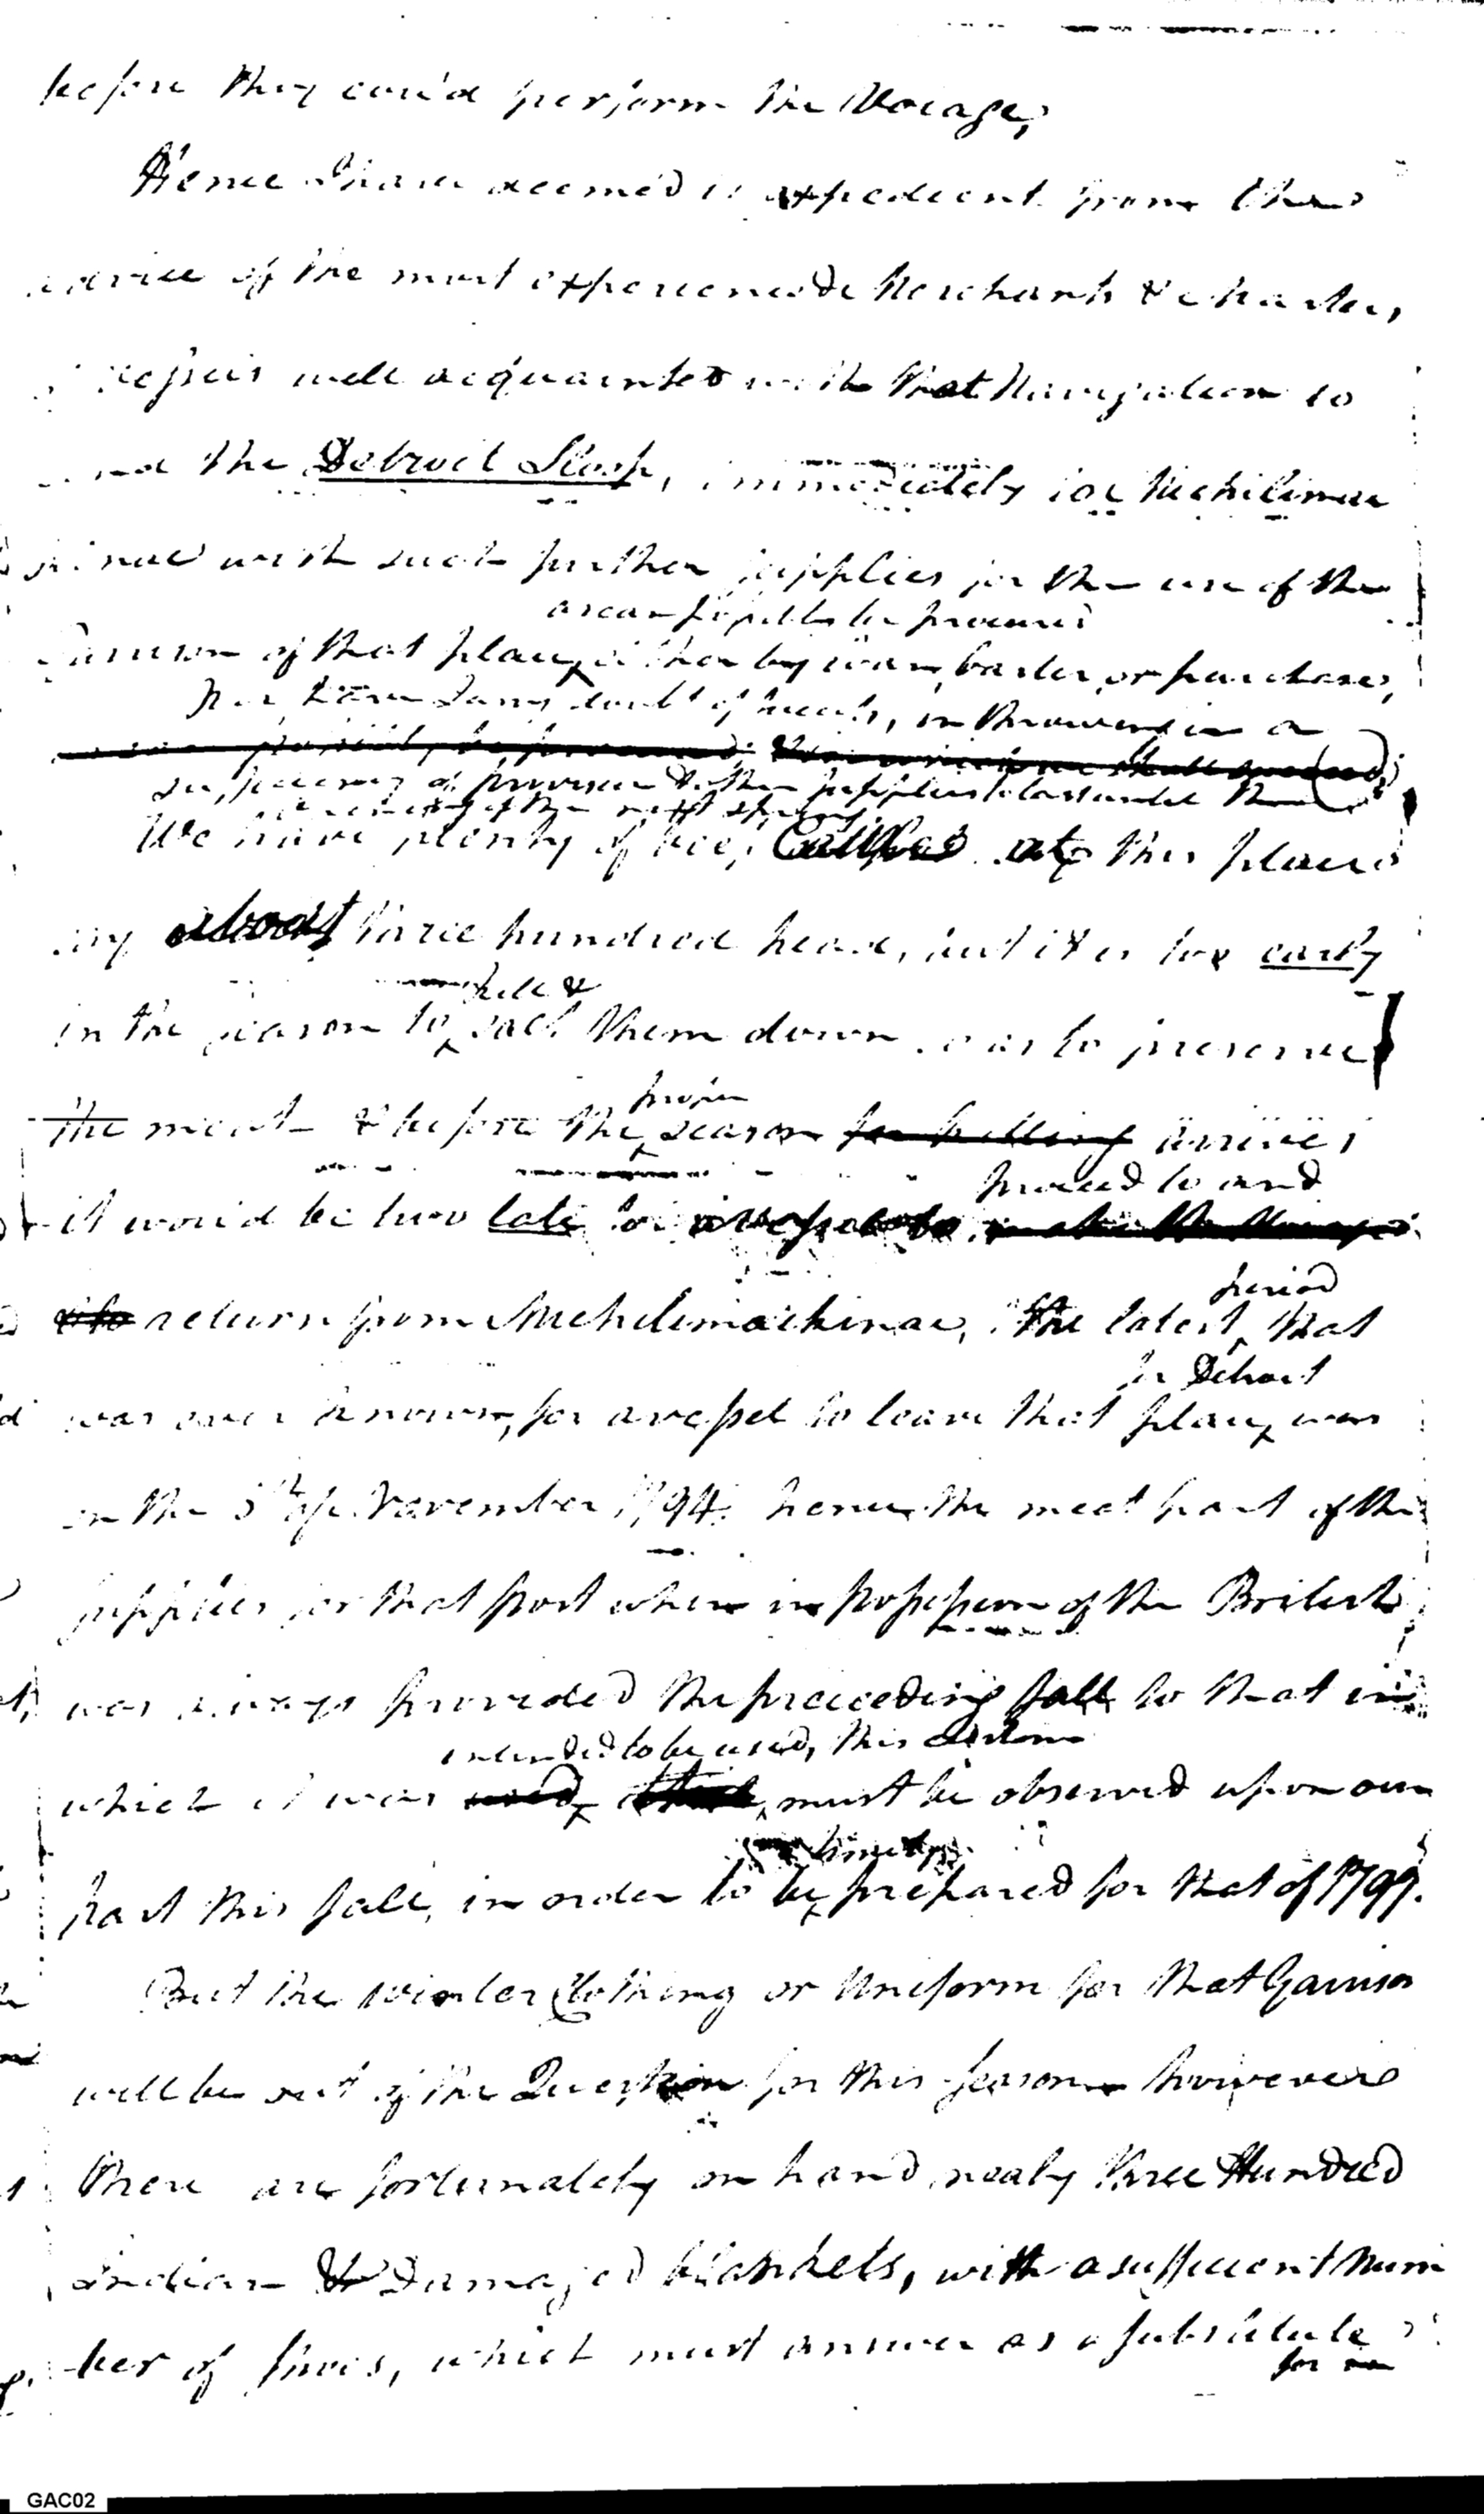 before they cou'd perform the Voiage,
Hence I have deemed it expedient from the
advice of the most experienced Merchants & Masters
of vessels well acquainted with that Navigation to
send the Detroit Sloop, immediately for Michilimac
kinac with such further supplies for the use of the
as can possibly be procured
Garrison of that place, either by loan, barter, or purchase,
nor have I any doubt of success, in throwing in a
sufficiency of provision & other supplies to last until the
of the next spring
We have plenty of beef Cattle at this place
say about three hundred head, but it is too early
kill &
in the season to salt them down so as to preserve
proper
the meat & before the season for killing arrives
proceed to and
it would be two late for a vessel to make the Voyage
& to return from Michilimackinac, the latest that
period
for Detroit
was ever known, for a vessel to leave that place, was
on the 5th of November 1794. hence the meat part of the
supplies for that post when in possession of the British
was always provided the preceeding fall to that in
intended to be used, this custom
which it was used must be observed upon our
timely
part this fall, in order to be prepared for that of 1797.
But the winter Clothing or Uniform for that Garrison
will be out of the Question for this season however
there are fortunately on hand nealy three Hundred
Indian & Damaged blankets, with a sufficient num
ber of shoes, which must answer as a substitute
for